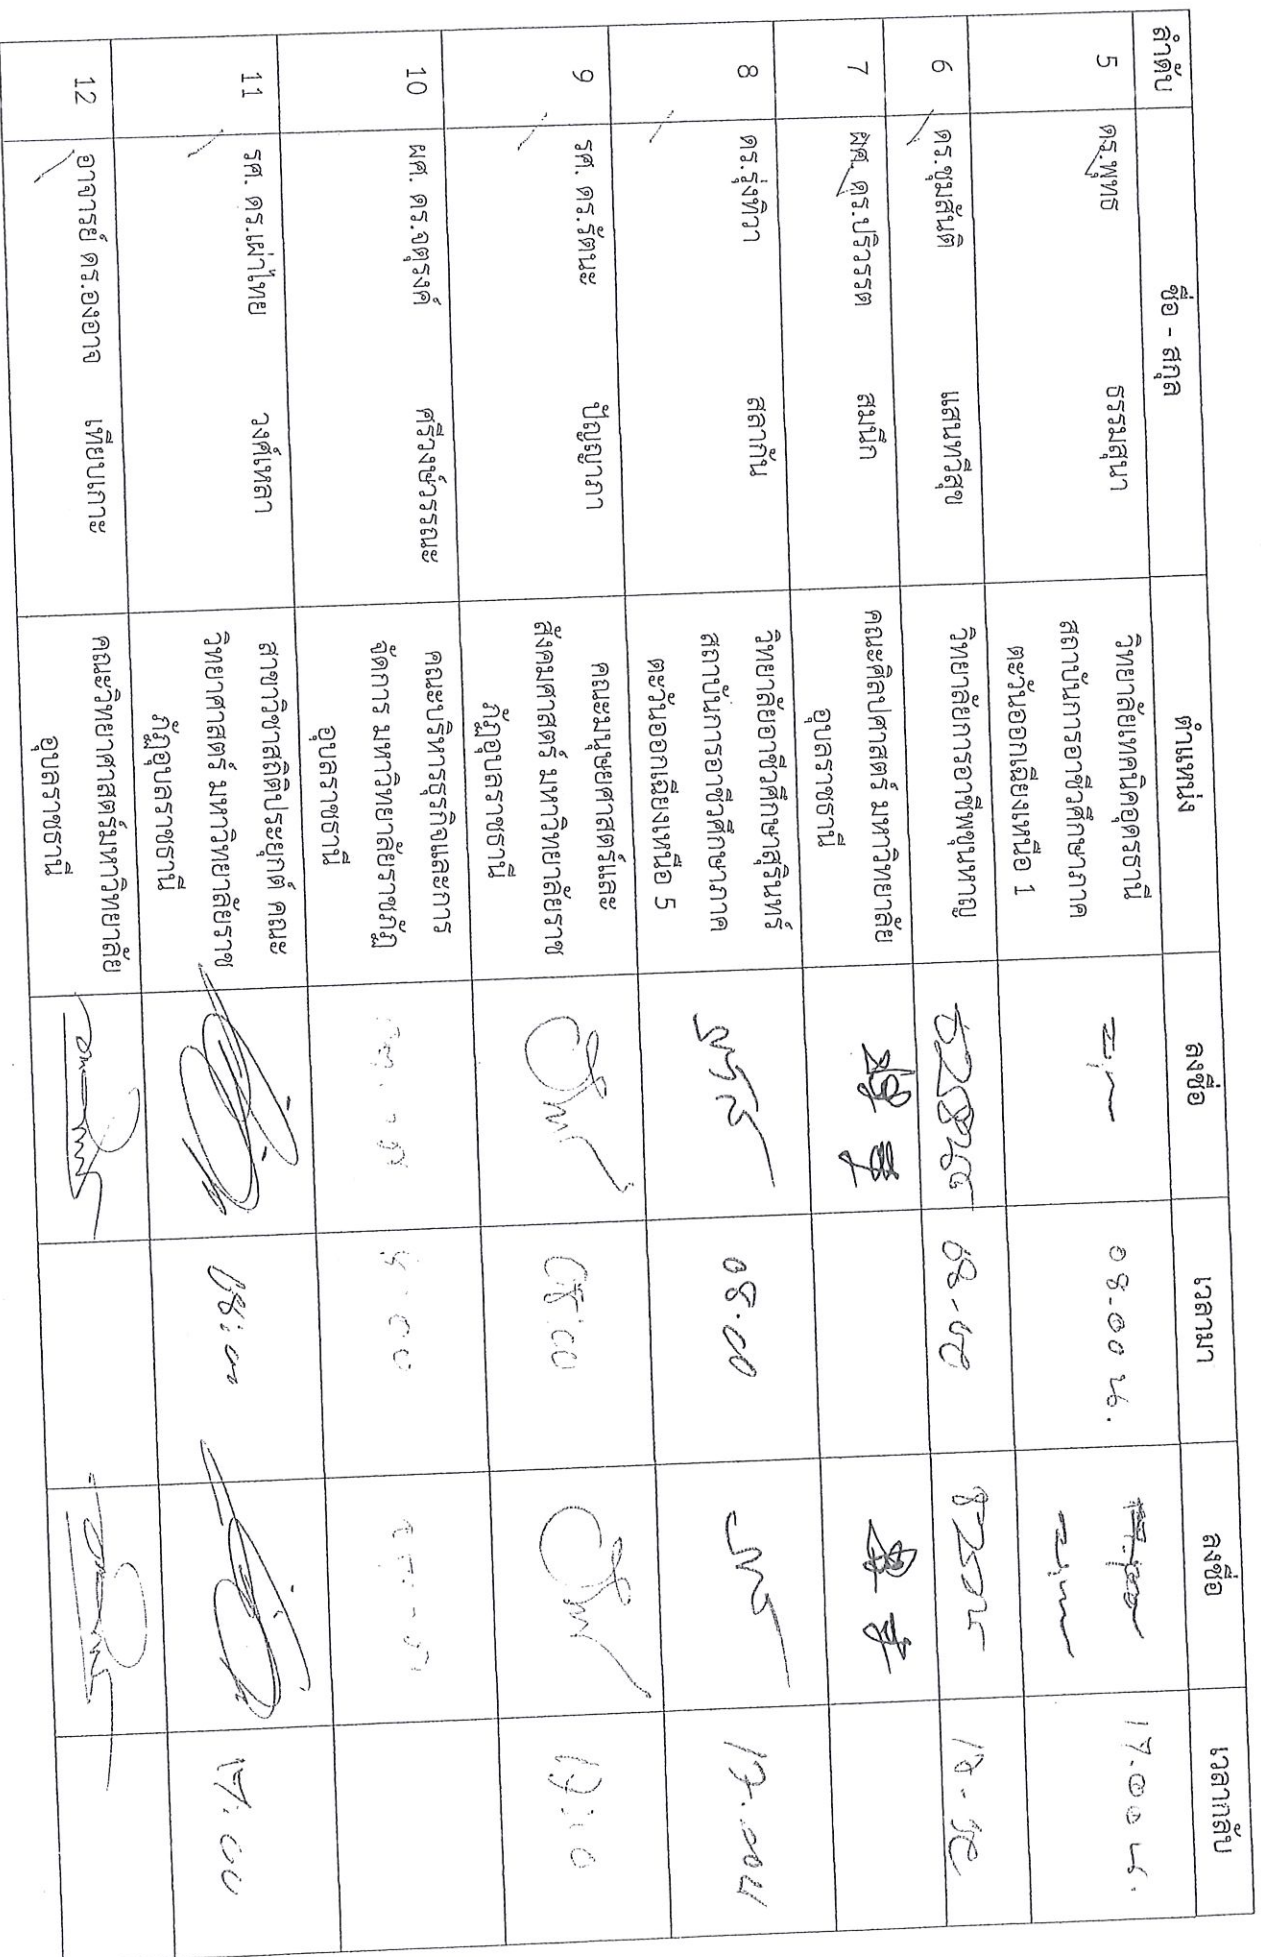 ลำดับ ชื่อ - สกุล ตำแหน่ง ลงชื่อ เวลามา ลงชื่อ เวลากลับ
5 ดร.พุทธ ธรรมสุนา วิทยาลัยเทคนิคอุดรธานี 08.00 น. 17.00 น.
สถาบันการอาชีวศึกษาภาค
ตะวันออกเฉียงเหนือ 1
6 ดร.ชุมสันติ แสนทวีสุข วิทยาลัยการอาชีพขุนหาญ
7 ผศ. ดร.ปริวรรต สมนึก คณะศิลปศาสตร์ มหาวิทยาลัย
อุบลราชธานี
8 ดร.รุ่งทิวา สลากัน วิทยาลัยอาชีวศึกษาสุรินทร์ 08.00 17.00น
สถาบันการอาชีวศึกษาภาค
ตะวันออกเฉียงเหนือ 5
9 รศ. ดร.รัตนะ ปัญญาภา คณะมนุษยศาสตร์และ 08:00
สังคมศาสตร์ มหาวิทยาลัยราช
ภัฏอุบลราชธานี
10 ผศ. ดร.จตุรงค์ ศรีวงษ์วรรณะ คณะบริหารธุรกิจและการ
จัดการ มหาวิทยาลัยราชภัฏ
อุบลราชธานี
11 รศ. ดร.เผ่าไทย วงศ์เหลา สาขาวิชาสถิติประยุกต์ คณะ 08:00 17:00
วิทยาศาสตร์ มหาวิทยาลัยราช
ภัฏอุบลราชธานี
12 อาจารย์ ดร.องอาจ เทียบเกาะ คณะวิทยาศาสตร์มหาวิทยาลัย
อุบลราชธานี